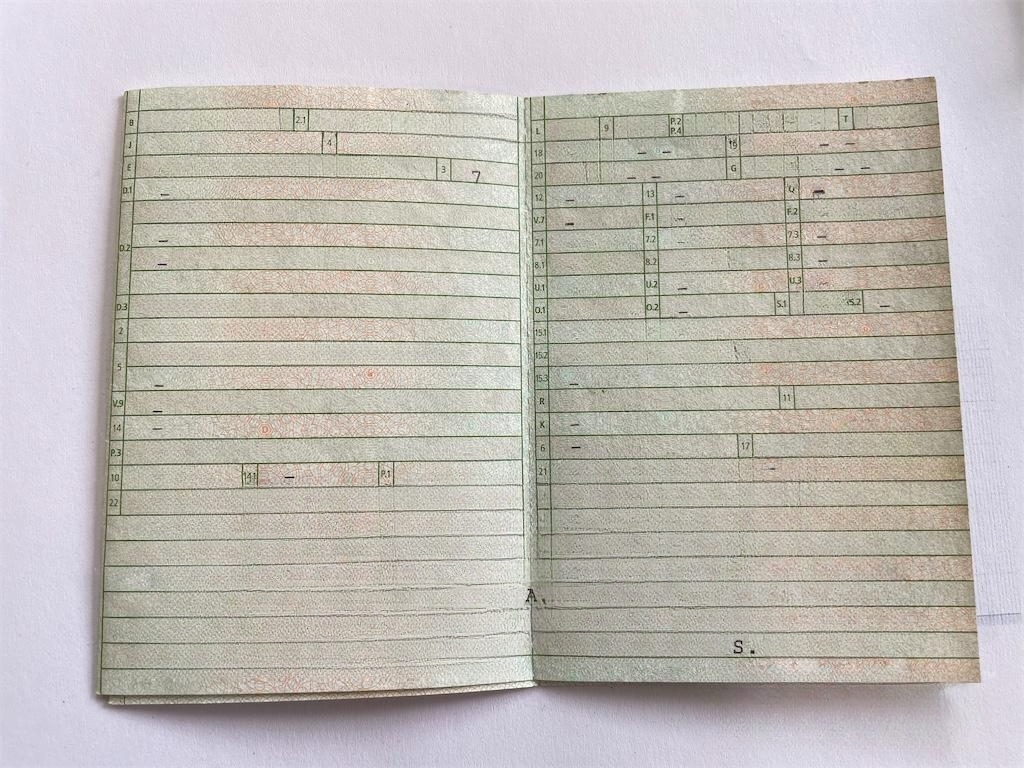 B 2.1
J 4
E 3 7
D.1 —
D.2 —
—
D.3
2
5 —
V.9 —
14 —
P.3
10 14.1 — P.1
22
L 9 P.2 P.4 T
18 — — 19 — —
20 — — G — —
12 — 13 — Q —
V.7 — F.1 — F.2
7.1 7.2 — 7.3 —
8.1 8.2 8.3 —
U.1 U.2 — U.3
O.1 O.2 — S.1 S.2 —
15.1
15.2
15.3 —
R 11
K —
6 — 17
21 -
A.
S.